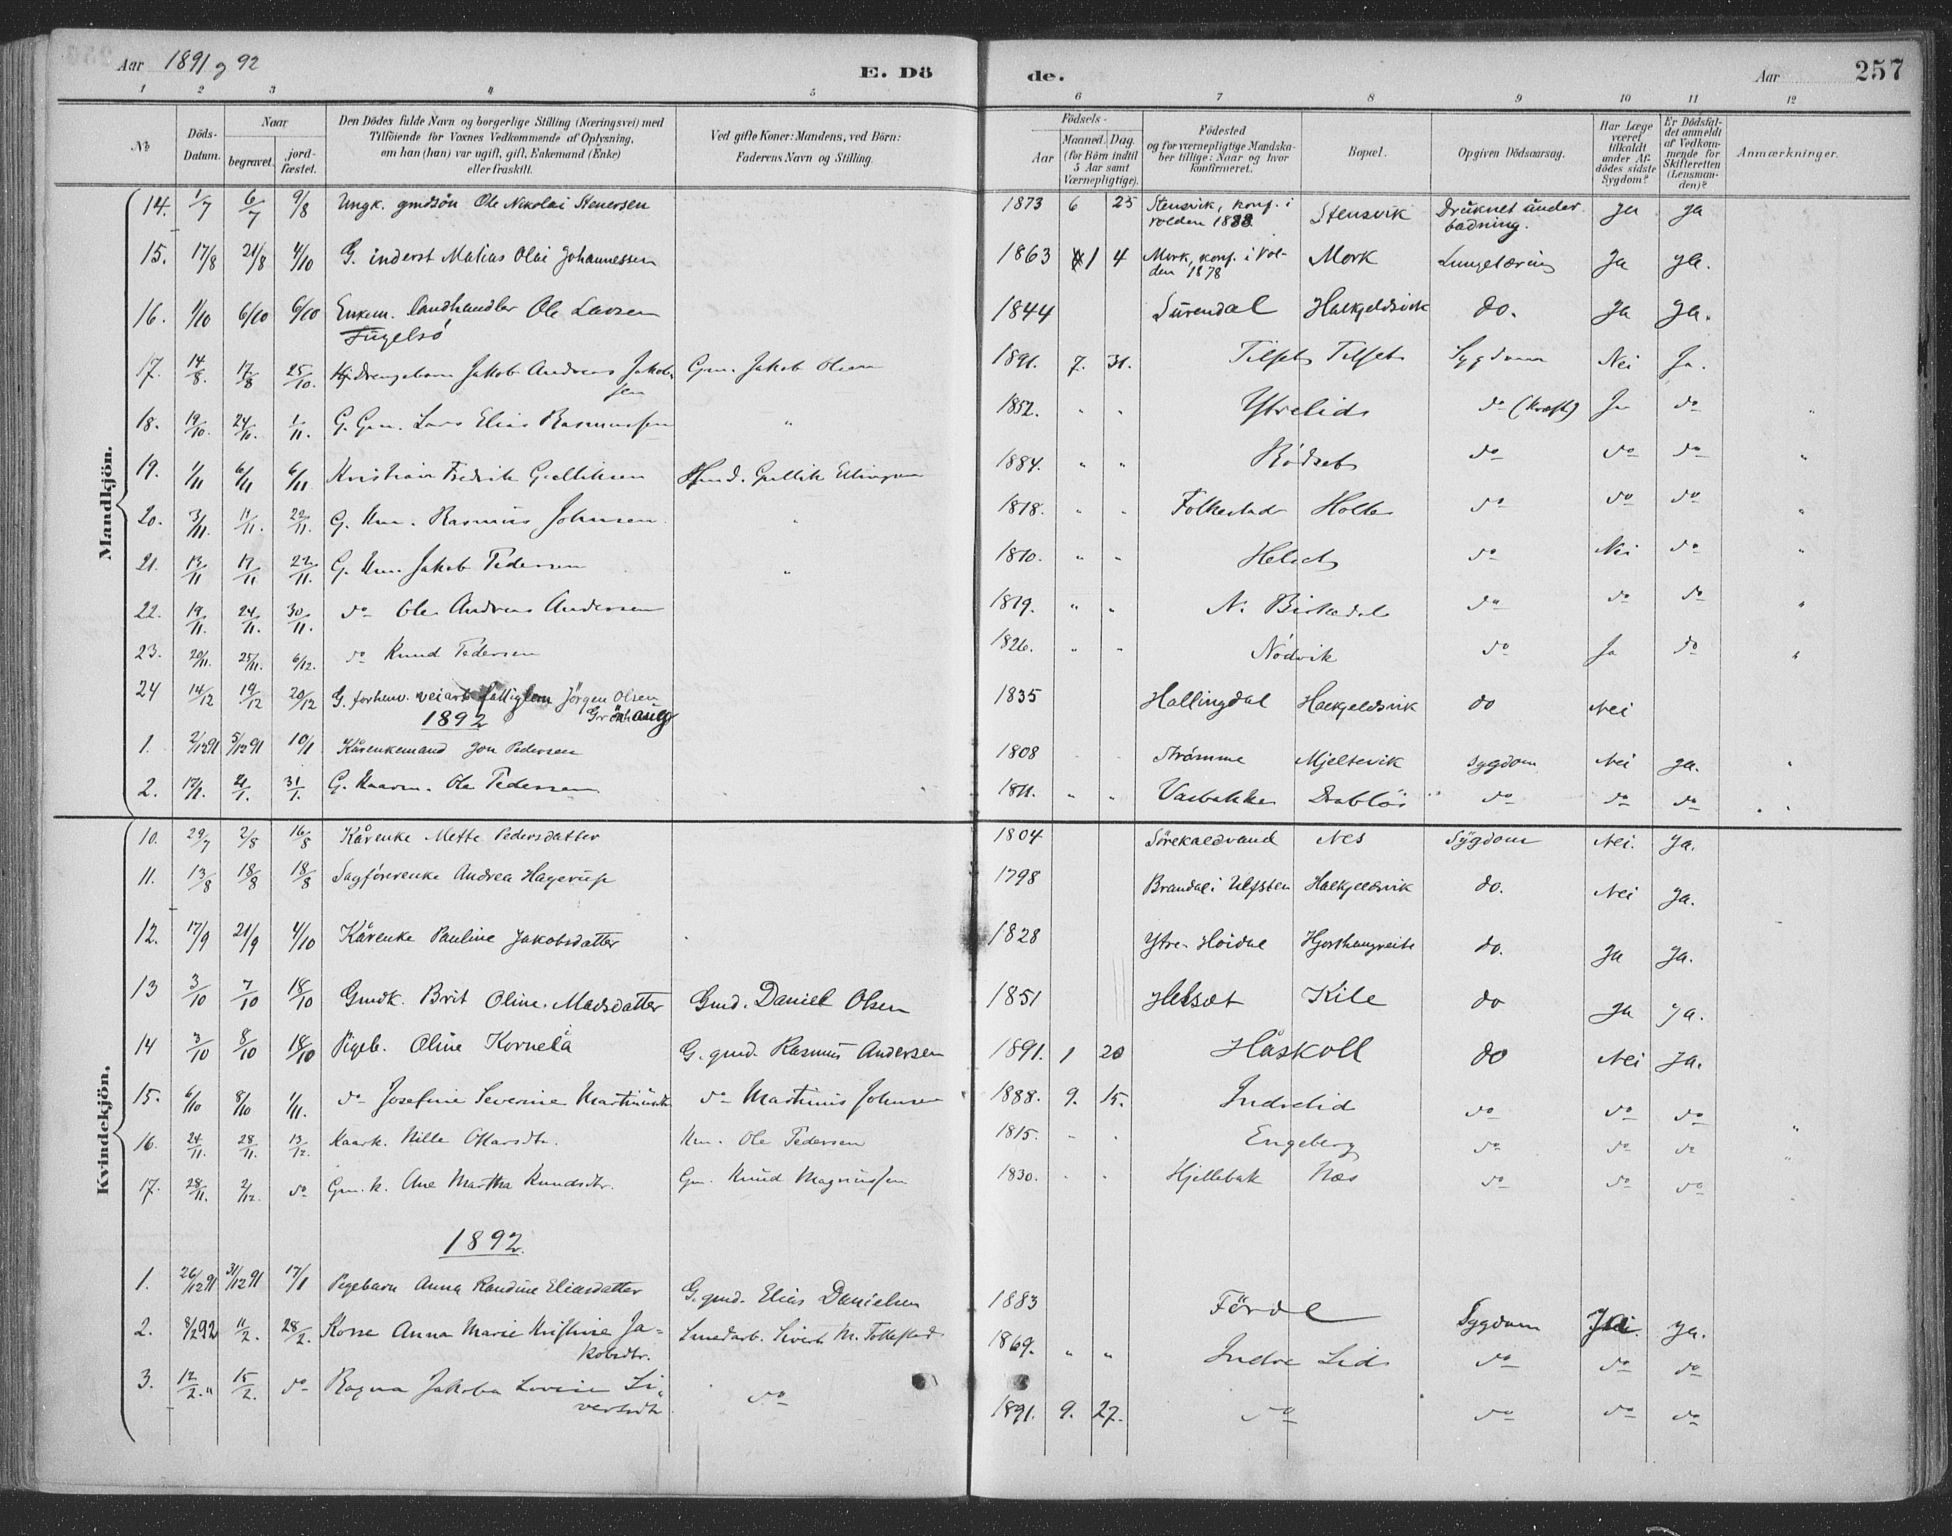 Aar 1891 og 92 E. Dö de. Aar 257
1 2 3 4 5 6 7 8 9 10 11 12
No Döds-Datum. Naar begravet. jordfæstet. Den Dödes fulde Navn og borgerlige Stilling (Næringsvei) med Tilföiende for Voxnes Vedkommende af Oplysning, om han (hun) var ugift, gift, Enkemand (Enke) eller fraskilt. Ved gifte Koner: Mandens, ved Börn: Faderens Navn og Stilling. Födsels- Aar Maaned. Dag. (for Börn indtil 5 Aar samt Værnepligtige). Födested og for værnepligtige Mandskaber tillige: Naar og hvor konfirmeret. Bopæl. Opgiven Dödsaarsag. Har Læge været tilkaldt under Afdödes sidste Sygdom? Er Dödsfaldet anmeldt af Vedkommende for Skifteretten (Lensmanden)? Anmærkninger.
Mandkjön.
14. 1/7 6/7 9/8 Ungk. gmdsön Ole Nikolai Stenersen 1873 6 25 Stensvik, konf. i Volden 1888 Stensvik Druknet under badning. Ja Ja
15. 17/8 21/8 4/10 G. inderst Matias Olai Johannessen 1863 1 4 Mork, konf. i Volden 1878 Mork Lungetæring Ja Ja.
16. 1/10 6/10 6/10 Enkem. Landhandler Ole Larsen Fugelsö 1844 Surendal Halkjeldsvik do. Ja Ja.
17. 14/8. 17/8 25/10. Drengebarn Jakob Andreas Jakobsen Gm. Jakob Olsen 1891. 7. 31. Tilset Tilset Sygdom Nei Ja.
18. 19/10. 24/10. 1/11. G. Gm. Lars Elias Rasmussen " 1852. " " Ytrelid do (Kræft) Ja do "
19. 1/11 6/11 6/11 Kristian Fredrik Gulliksen Gullik Ellingsen 1884. " " Rödset do do do "
20. 3/11 11/11. 22/11. G. Km. Rasmus Johnsen " 1818. " " Folkestad Holte do do do "
21. 13/11 17/11 22/11. G. Km. Jakob Pedersen " 1810. " " Helset do Nei do "
22. 19/11. 24/11. 30/11. do Ole Andreas Andersen 1819. " " N. Birkedal do do do "
23. 20/11. 25/11. 6/12. do Knud Pedersen 1826. " " Nödvik do Ja do "
24 14/12 19/12 20/12 G. forhenv. veiarb. fattiglem Jörgen Olsen Grönhaug 1835 Hallingdal Halkjeldsvik do Nei
1892
1. 2/12 91 5/12 91 10/1 Kårenkemand Jon Pedersen 1808 Strömme Mjeltevik Sygdom Nei Ja. "
2. 17/1. 21/1. 31/1. G. Kaarm. Ole Pedersen 1811. " " Vasbakke Drablös do do do "
Kvindekjön.
10. 29/7 2/8 16/8 Kårenke Mette Pedersdatter 1804 Sörekaldvand Nes Sygdom Nei. Ja.
11. 13/8 18/8 18/8 Sagförerenke Andrea Hagerup 1798 Brandal i Ulfsten Halkjeldsvik do. Nei Ja.
12. 17/9 21/9 4/10 Kårenke Pauline Jakobsdatter 1828 Ytre-Höidal Hjorthaugreite do. Ja Ja.
13 3/10 7/10 18/10 Gmdk. Brit Oline Madsdatter Gmd. Daniel Olsen 1851 Helset Kile do Ja Ja.
14 3/10 8/10 18/10 Pigeb. Oline Kornela G. gmd. Rasmus Andersen 1891. 1 20 Håskoll do Nei Ja.
15. 6/10 8/10 1/11. do Josefine Severine Martinusdtr do Martinus Johnsen 1888. 9. 15. Indrelid do do do "
16. 24/11. 28/11. 13/12. Kaark. Nille Olkarsdtr. Km. Ole Pedersen 1815. " " Engeberg do do do "
17. 28/11. 2/12. do Gm. k. Ane Martha Knudsdtr. Gm. Knud Magnussen 1830. " " Hjellebak Næs do do do
1892.
1. 26/12 91 31/12 91 17/1 Pigebarn Anna Randine Eliasdatter G. gmd. Elias Danielsen 1883 Förde Sygdom Ja Ja.
2. 8/2 92 11/2. 28/2. Kone Anna Marie Kristine Jakobsdtr. Smedarb. Sivert M. Folkestad 1869. " " Indre Lid do do do
3. 12/2. " 15/2. do Ragna Jakoba Lovise Sivertsdtr do 1891. 9. 27. do do do do